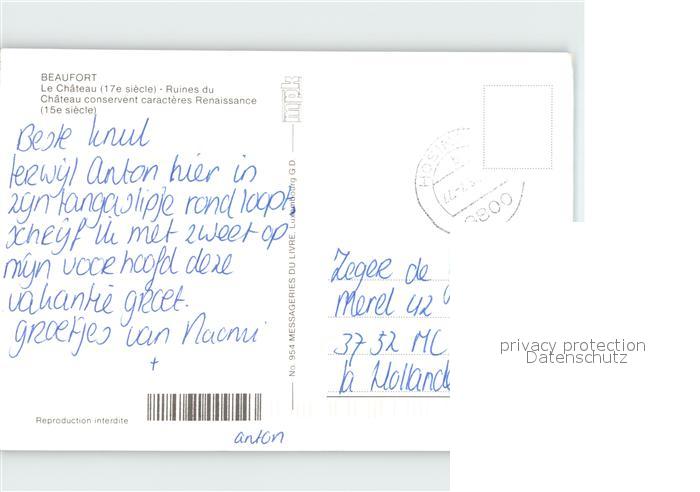 BEAUFORT
Le Château (17e siècle) - Ruines du
Château conservent caractères Renaissance
(15e siècle)
mpk
No. 954 MESSAGERIES DU LIVRE, Luxembourg G.D.
Beste knul
terwijl Anton hier in
zijn tangaslipje rondloopt
schrijf ik met zweet op
mijn voorhoofd deze
vakantie groet.
groetjes van Naomi
+
anton
Reproduction interdite
Zeger de
Merel 42
3732 MC
la Hollande
privacy protection
Datenschutz